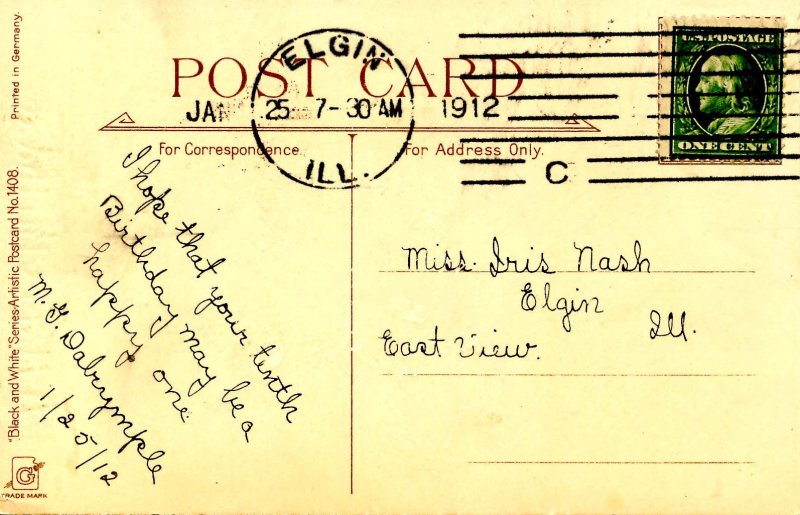 Printed in Germany.
"Black and White" Series-Artistic Postcard No. 1408.
G
TRADE MARK
POST CARD
ELGIN
JAN 25 7-30 AM 1912
ILL.
C
U.S. POSTAGE
ONE CENT
For Correspondence
For Address Only.
I hope that your tenth
Birthday may be a
happy one
M. G. Dalrymple
1/25/12
Miss. Iris Nash
Elgin
Ill.
East View.